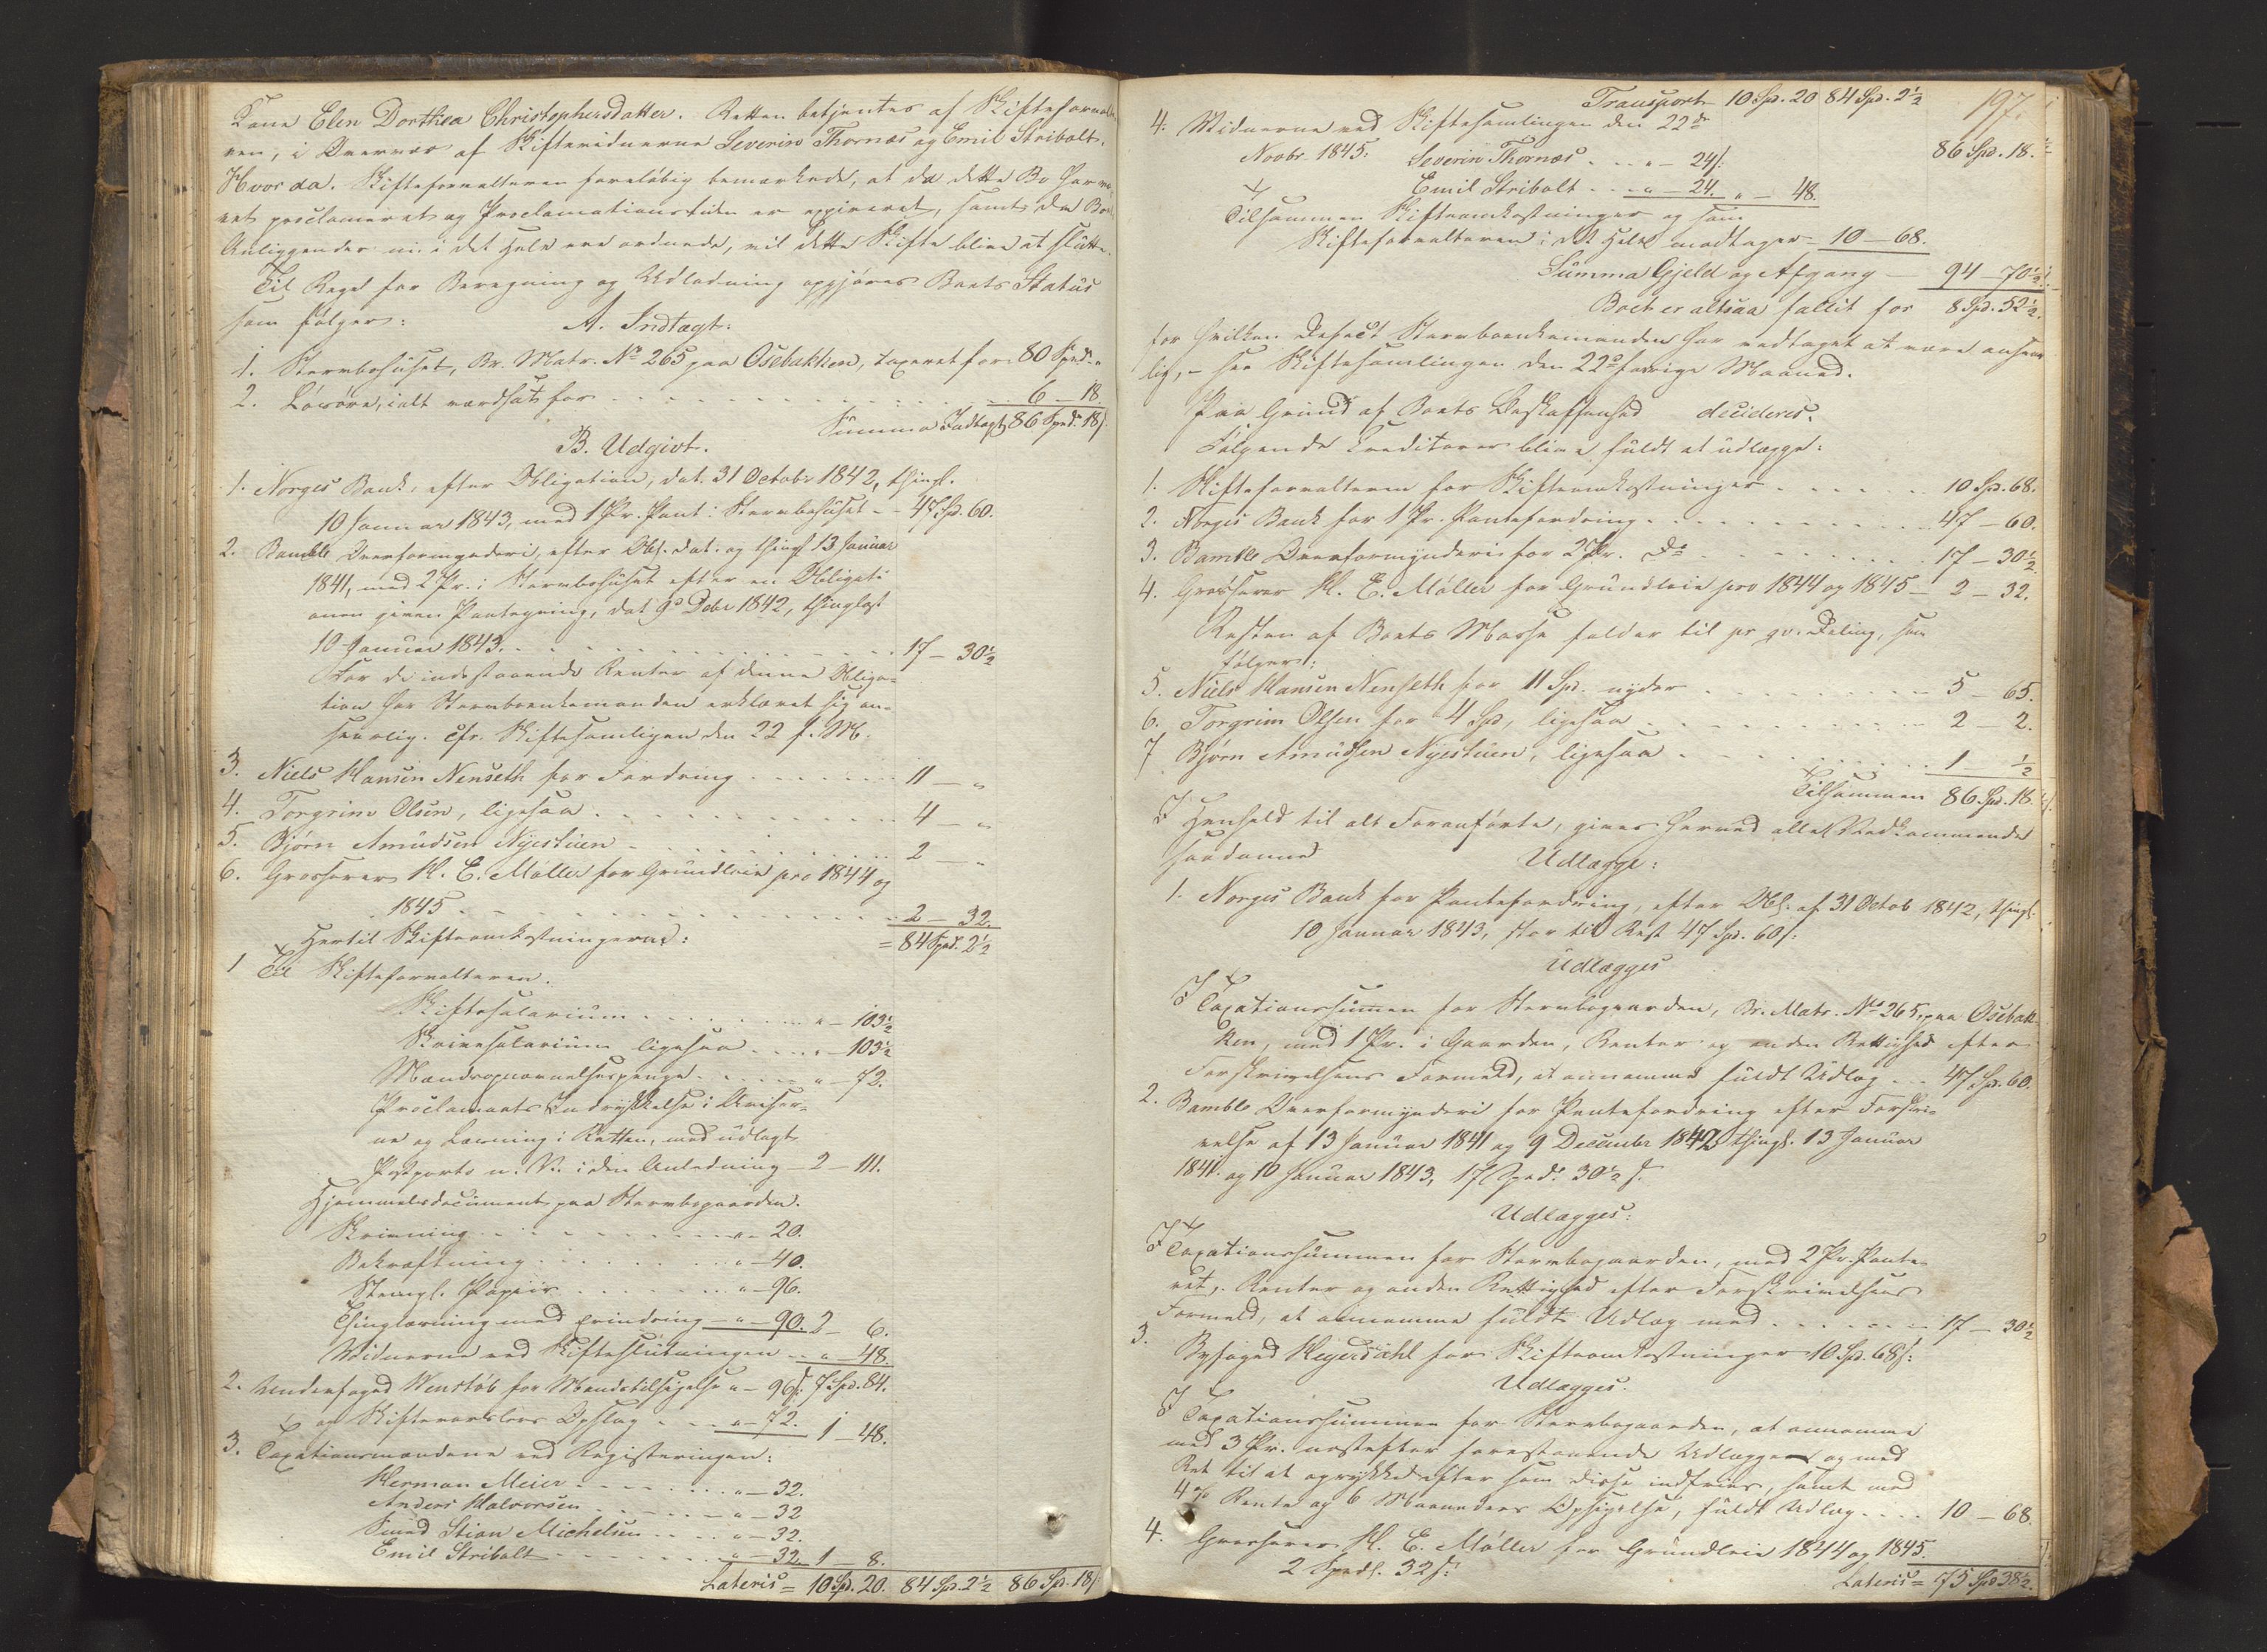 Kone Elen Dorthea Christophersdatter. Retten betjentes af Skifteforvalte-
ren, i Overvær af Skiftevidnerne Severin Thornæs og Emil Stribolt.
Hvor da. Skifteforvalteren foreløbig bemærkede, at da dette Bo har væ-
ret proclameret og Proclamationstiden er expireret, samt da Boets
Anliggender nu i det Hele ere ordnede, vil dette Skifte blive at slutte.
Til Regel for Beregning og Udlodning opgjøres Boets Status
som følger:
A. Indtægt:
1. Stervbohuset, Br. Matr. No 265 paa Osebakken, taxeret for 80 Spd. "
2. Løsøre, ialt værdsat for 6 - 18.
Summa Indtægt 86 Spd. 18 s
B. Udgivt.
1. Norges Bank, efter Obligation, dat. 31 Octobr 1842, thingl.
10 Januar 1843, med 1 Pr. Pant i Stervbohuset - 47 Sp. 60.
2. Bamble Overformynderi, efter Obl. dat. og thingl 13 Januar
1841, med 2 Pr. i Stervbohuset efter en Obligati-
onen given Paategning, dat 9d Debr 1842, thinglæst
10 Januar 1843 17 - 30½
For de indestaaende Renter af denne Obliga-
tion har Stervboenkemanden erklæret sig an-
svarlig. cfr. Skiftesamlingen den 22 f. M.
3. Niels Hansen Nenseth for Fordring 11 - "
4. Torgrim Olsen, ligesaa 4 - "
5. Bjørn Amundsen Nyestuen 2 - "
6. Grosserer H. E. Møller for Grundleie pro 1844 og
1845 2 - 32.
Hertil Skifteomkostningerne: = 84 Spd. 2½
1 Til Skifteforvalteren.
Skiftesalarium " - 103½
Skrivesalarium ligesaa " - 103½
Mændsopnævnelsespenge " - 72.
Proclamaets Indrykkelse i Aviser-
ne og Læsning i Retten, med udlagt
Postporto m. V. i den Anledning - 2 - 111.
Hjemmelsdocument paa Stervbogaarden.
Skrivning " - 20.
Bekræftning " - 40.
Stempl. Papiir " - 96.
Thinglæsning med Erindring - " - 90. 2 - 6.
Vidnerne ved Skifteslutningen " - 48.
7 Spd. 84.
2. Underfoged Wenstøb for Mændstilsigelse " - 96 s.
og Skifteværslers Opslag " - 72. 1 - 48.
3. Taxationsmændene ved Registeringen:
Herman Meier " - 32.
Anders Halvorsen " - 32
Smed Stian Michelsen " - 32.
Emil Stribolt " - 32. 1 - 8.
Lateris = 10 Sp. 20. 84 Sp. 2½ 86 Sp. 18 s
197.
Transport 10 Sp. 20 84 Spd. 2½
86 Spd. 18.
4. Vidnerne ved Skiftesamlingen den 22de
Novbr 1845: Severin Thornæs " - 24 s.
Emil Stribolt " - 24. " - 48.
Tilsammen Skifteomkostninger og som
Skifteforvalteren i det Hele modtager - 10 - 68.
Summa Gjeld og Afgang 94 - 70½
Boet er altsaa fallit for 8 Spd. 52½.
for hvilken Defect Stervboenkemanden har vedtaget at være ansvar
lig, - see Skiftesamlingen den 22d forrige Maaned.
Paa Grund af Boets Beskaffenhed decideres:
Følgende Creditorer blive fuldt at udlægge:
1. Skifteforvalteren for Skifteomkostninger 10 Sp. 68.
2. Norges Bank for 1 Pr. Pantefordring 47 - 60.
3. Bamble Overformynderi for 2 Pr. Do 17 - 30½.
4. Grosserer H. E. Møller for Grundleie pro 1844 og 1845 - 2 - 32.
Resten af Boets Masse falder til pr qv. Deling, som
følger:
5. Niels Hansen Nenseth for 11 Spd. nyder 5 - 65.
6. Torgrim Olsen for 4 Spd, ligesaa 2 - 2.
7 Bjørn Amundsen Nyestuen, ligesaa 1 ½
Tilsammen 86 Spd. 18.
I Henhold til alt Foranførte, gives herved alle Vedkommende
saadanne Udlægge:
1. Norges Bank for Pantefordring, efter Obl. af 31 Octob 1842, thingl.
10 Januar 1843, stor til Rest 47 Sp. 60 s.
Udlægges
I Taxationssummen for Stervbogaarden, Br. Matr. No 265, paa Osebak-
ken, med 1 Pr. i Gaarden, Renter og anden Rettighed efter
Forskrivelsens Formeld, at annamme fuldt Udlæg - 47 Sp. 60.
2. Bamble Overformynderi for Pantefordring efter Forskri-
velse af 13 Januar 1841 og 9 December 1842, thingl. 13 Januar
1841. og 10 Januar 1843, 17 Spd. 30½ s.
Udlægges:
I Taxationssummen for Stervbogaarden, med 2 Pr. Pante-
ret, Renter og anden Rettighed efter Forskrivelsens
Formeld, at annamme fuldt Udlæg med 17 - 30½
3. Byfoged Heyerdahl for Skifteomkostninger 10 Spd. 68 s:
Udlægges.
I Taxationssummen for Stervbogaarden, at annamme
med 3 Pr. næstefter forestaaende Udlægger og med
Ret til at oprykke eftersom disse indfries, samt med
4% Rente og 6 Maaneders Opsigelse, fuldt Udlæg 10 - 68.
4. Grosserer H. E. Møller for Grundleie 1844 og 1845.
2 Spd. 32 s.
Lateris = 75 Spd 38½.